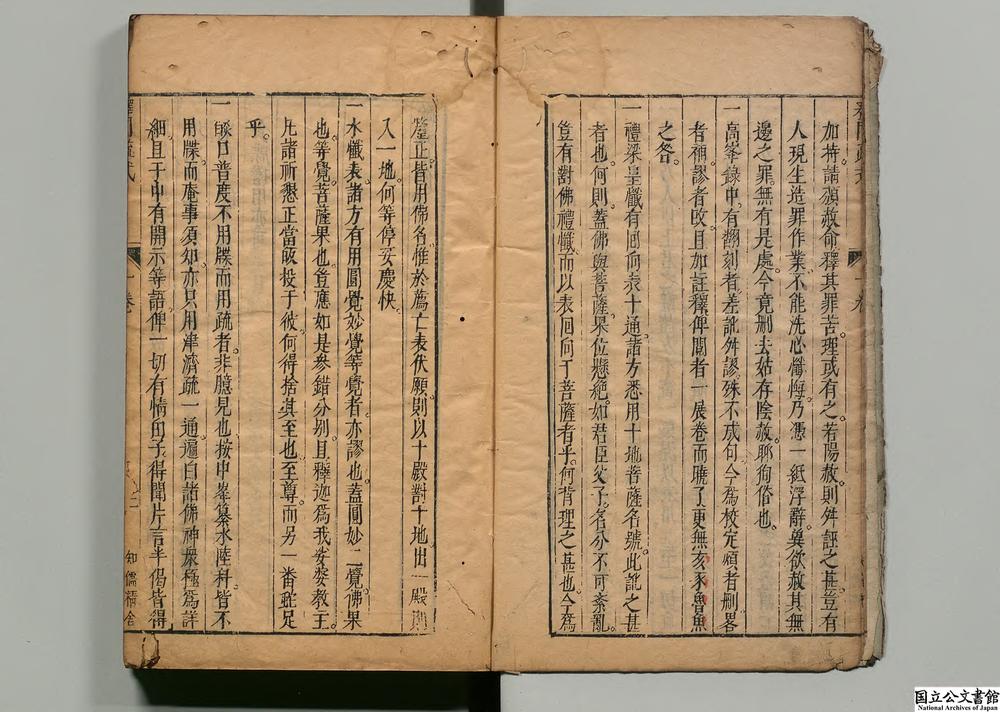 加持請頒赦命釋其罪苦。理或有之。若陽赦。則舛誣之甚。豈有
人現生造罪作業。不能洗心懺悔。乃憑一紙浮辭。冀欲赦其無
邊之罪。無有是處。今竟刪去。姑存陰赦。聊狥俗也。
一高峯錄中。有翻刻者。差訛舛謬。殊不成句。今爲校定。煩者刪。畧
者補。謬者改。且加註釋。俾閱者一展卷而曉了。更無亥豕魯魚
之咎。
一禮梁皇懺有回向表十通。諸方悉用十地菩薩名號。此訛之甚
者也。何則。蓋佛與菩薩。果位懸絕。如君臣父子。名分不可紊亂。
豈有對佛禮懺。而以表回向于菩薩者乎。何背理之甚也。今爲
釐正。皆用佛名。惟於薦亡表伏願。則以十殿對十地。出一殿
入一地。何等停妥慶快。
一水懺表。諸方有用圓覺妙覺等覺者。亦謬也。蓋圓妙二覺。佛果
也。等覺。菩薩果也。豈應如是參錯分別。且釋迦爲我娑婆教主。
凡諸所懇。正當皈投于彼。何得捨其至也。至尊。而另一番蛇足
乎。
一燄口普度。不用牒而用疏者。非臆見也。按中峯纂水陸科。皆不
用牒。而庵事須知。亦只用津濟疏一通。遍白諸佛神衆。極爲詳
細。且于中有開示等語。俾一切有情因子。得聞片言半偈。皆得
釋門疏式
一卷
知儒精舍
国立公文書館
National Archives of Japan